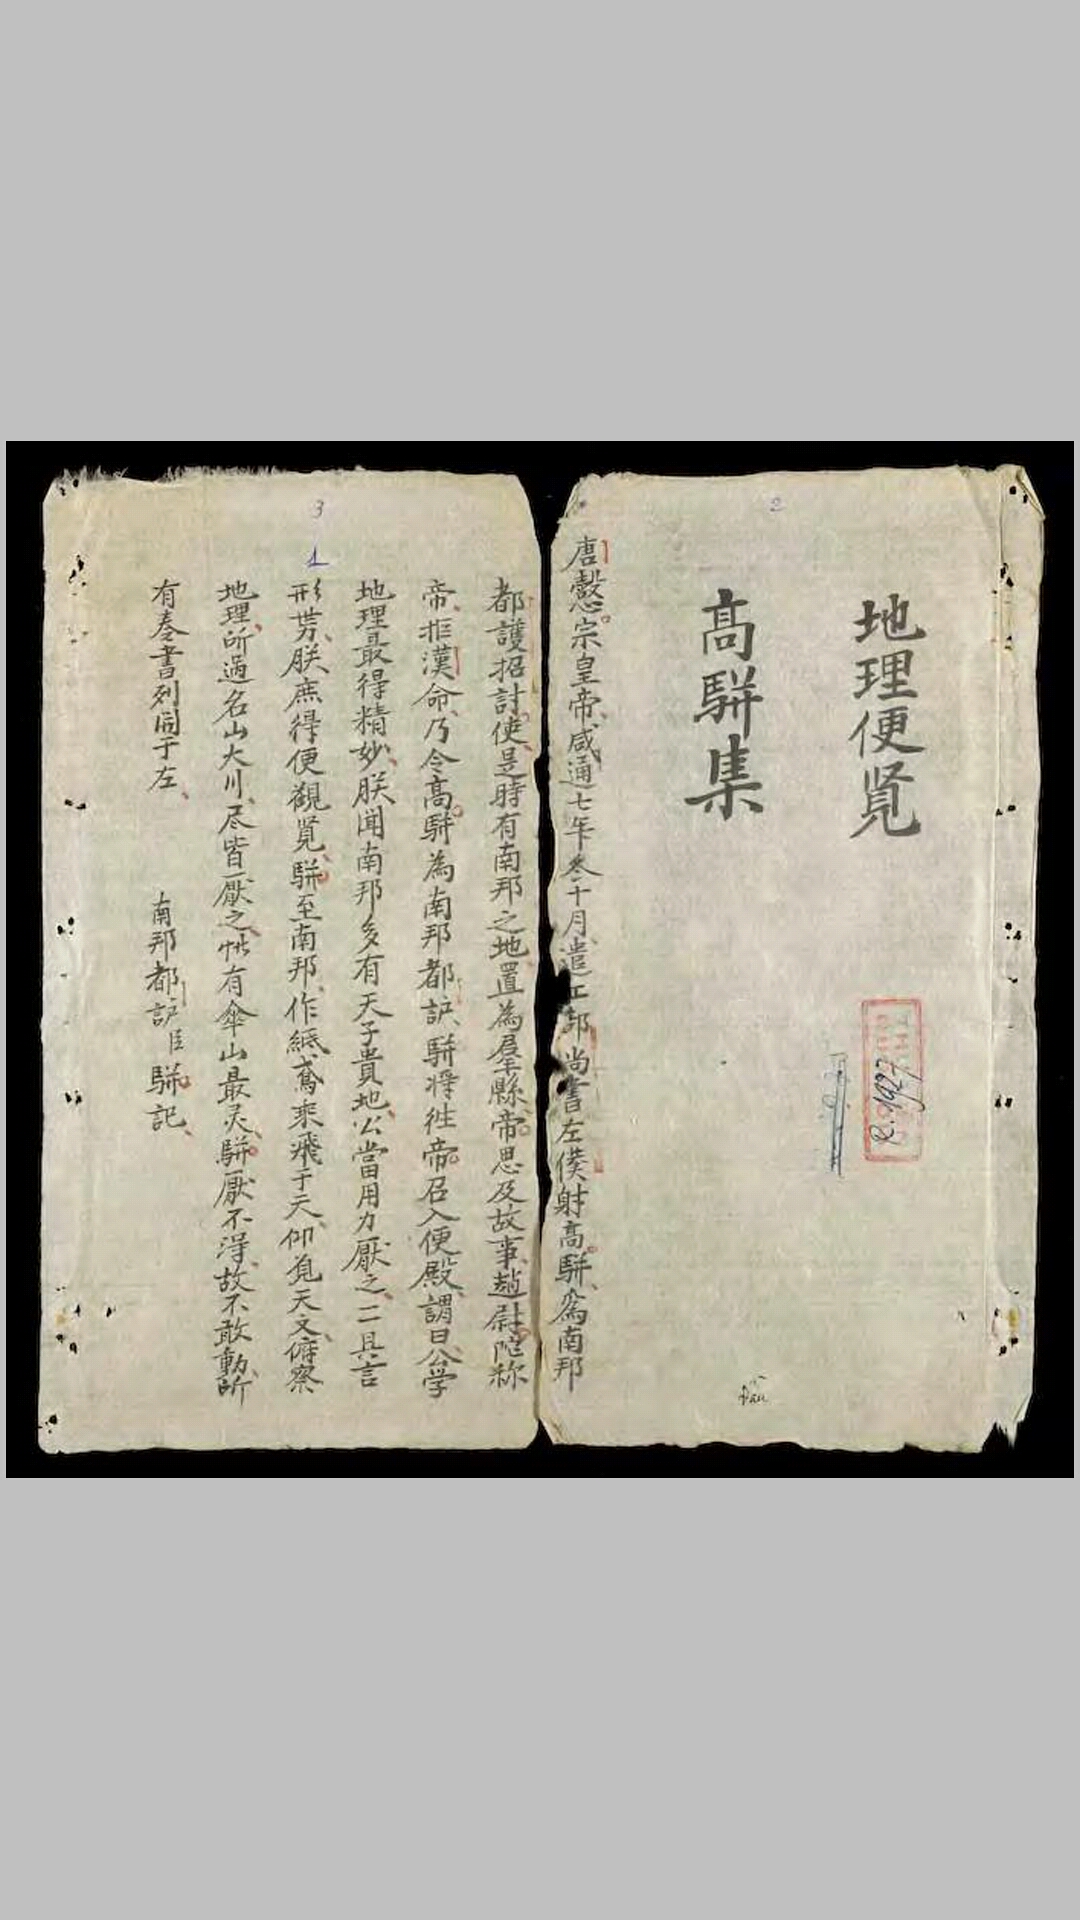 2
地理便覽
高駢集
A.1927
Đầu
唐懿宗皇帝咸通七年冬十月遣工部尚書左僕射高駢為南邦
3
1
都護招討使是時有南邦之地置為羣縣帝思及故事趙尉陀称
帝拒漢命乃令高駢為南邦都護駢將徃帝召入便殿謂曰公學
地理最得精妙朕聞南邦多有天子貴地公當用力厭之一一具言
形势朕庶得便觀覽駢至南邦作紙鳶乘飛于天仰覓天文俯察
地理所過名山大川尽皆厭之惟有傘山最灵駢厭不淂故不敢動所
有奏書列圖于左
南邦都護臣駢記